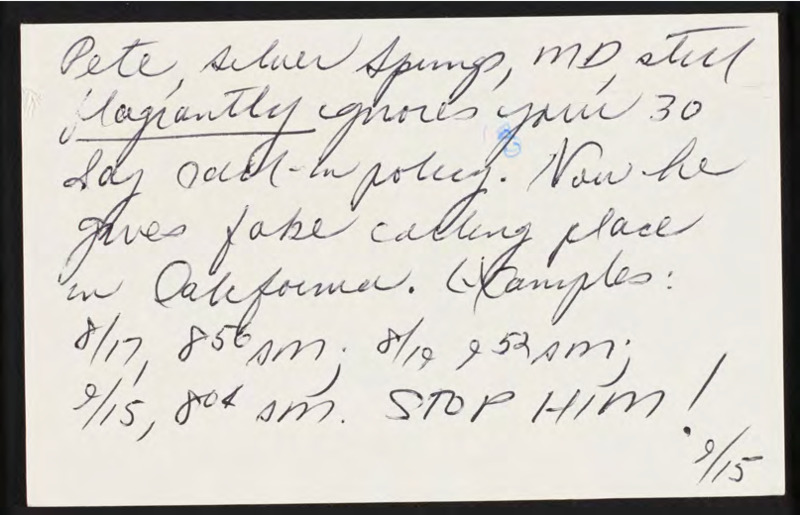 Pete, Silver Springs, MD, still
flagrantly ignores your 30
day call-in policy. Now he
gives fake calling place
in California. Examples:
8/17, 856 am; 8/19 952 am;
9/15, 804 am. STOP HIM!
9/15